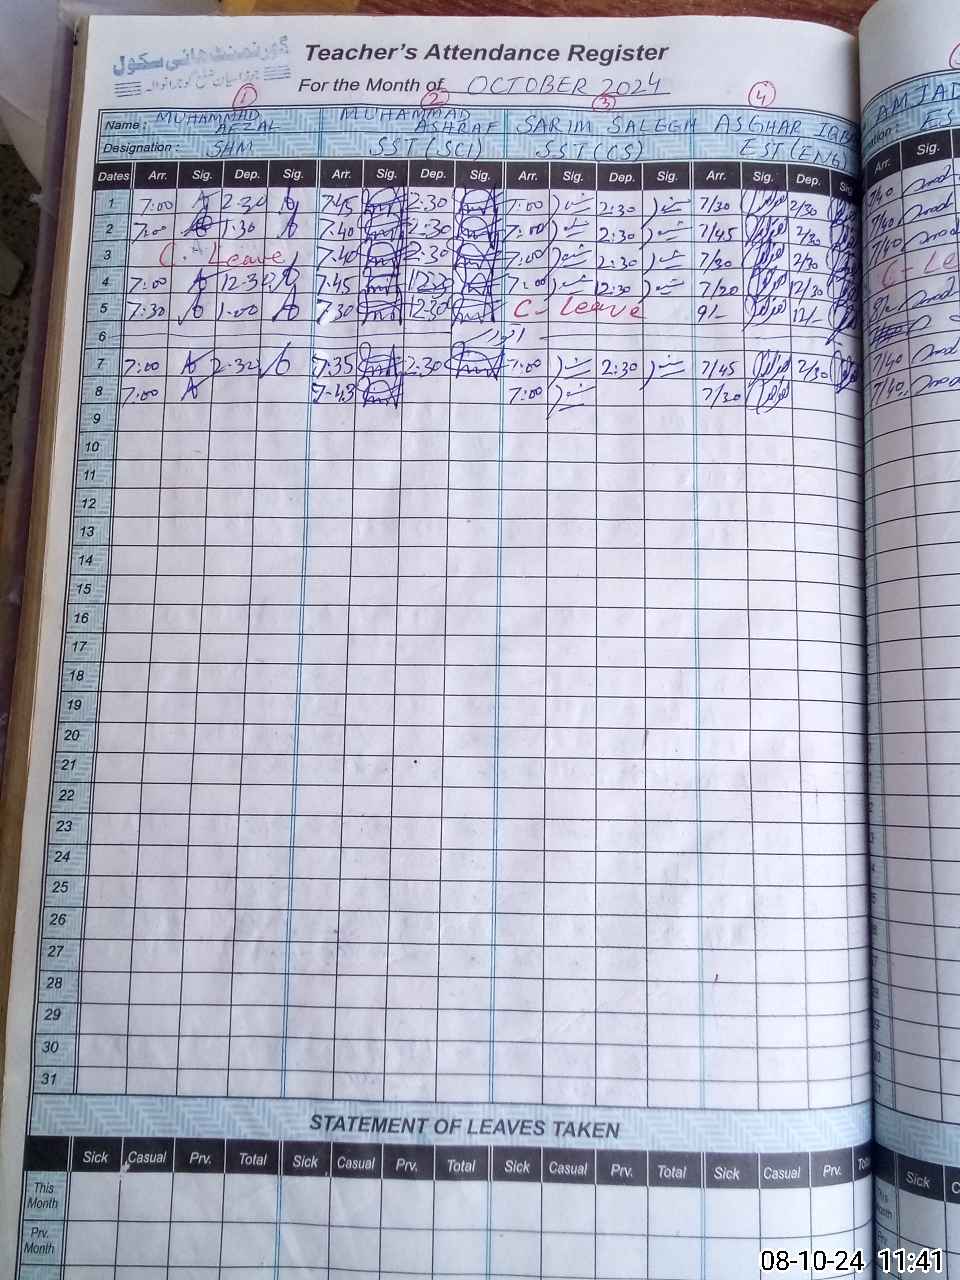 گورنمنٹ ہائی سکول
Teacher's Attendance Register
For the Month of OCTOBER 2024
1 2 3 4
Name: MUHAMMAD AFZAL MUHAMMAD ASHRAF SARIM SALEEM ASGHAR IQBA AMJAD
Designation: SHM SST(SCI) SST(CS) EST(ENG) ation: ES
Dates Arr. Sig. Dep. Sig. Arr. Sig. Dep. Sig. Arr. Sig. Dep. Sig. Arr. Sig. Dep. Sig Arr. Sig.
1 7:00 2-30 7:45 2:30 7:00 2:30 7/30 2/30 7/40
2 7:00 1:30 7:40 2:30 7:00 2:30 7/45 2/30 7/40
3 C. Leave 7:40 2:30 7:00 2:30 7/30 2/30 7/40
4 7:00 12-30 7:45 7:00 12:30 7/20 12/30 C-Le
5 7:30 1-00 7:30 12:30 C-Leave 9/- 12/-
6 اتوار
7 7:00 2:30 7:35 2:30 7:00 2:30 7/45 2/30 7/40
8 7:00 7-43 7:00 7/30 7/40
9
10
11
12
13
14
15
16
17
18
19
20
21
22
23
24
25
26
27
28
29
30
31
STATEMENT OF LEAVES TAKEN
Sick Casual Prv. Total Sick Casual Prv. Total Sick Casual Prv. Total Sick Casual Prv. Tot Sick C
This Month
Prv. Month
08-10-24 11:41